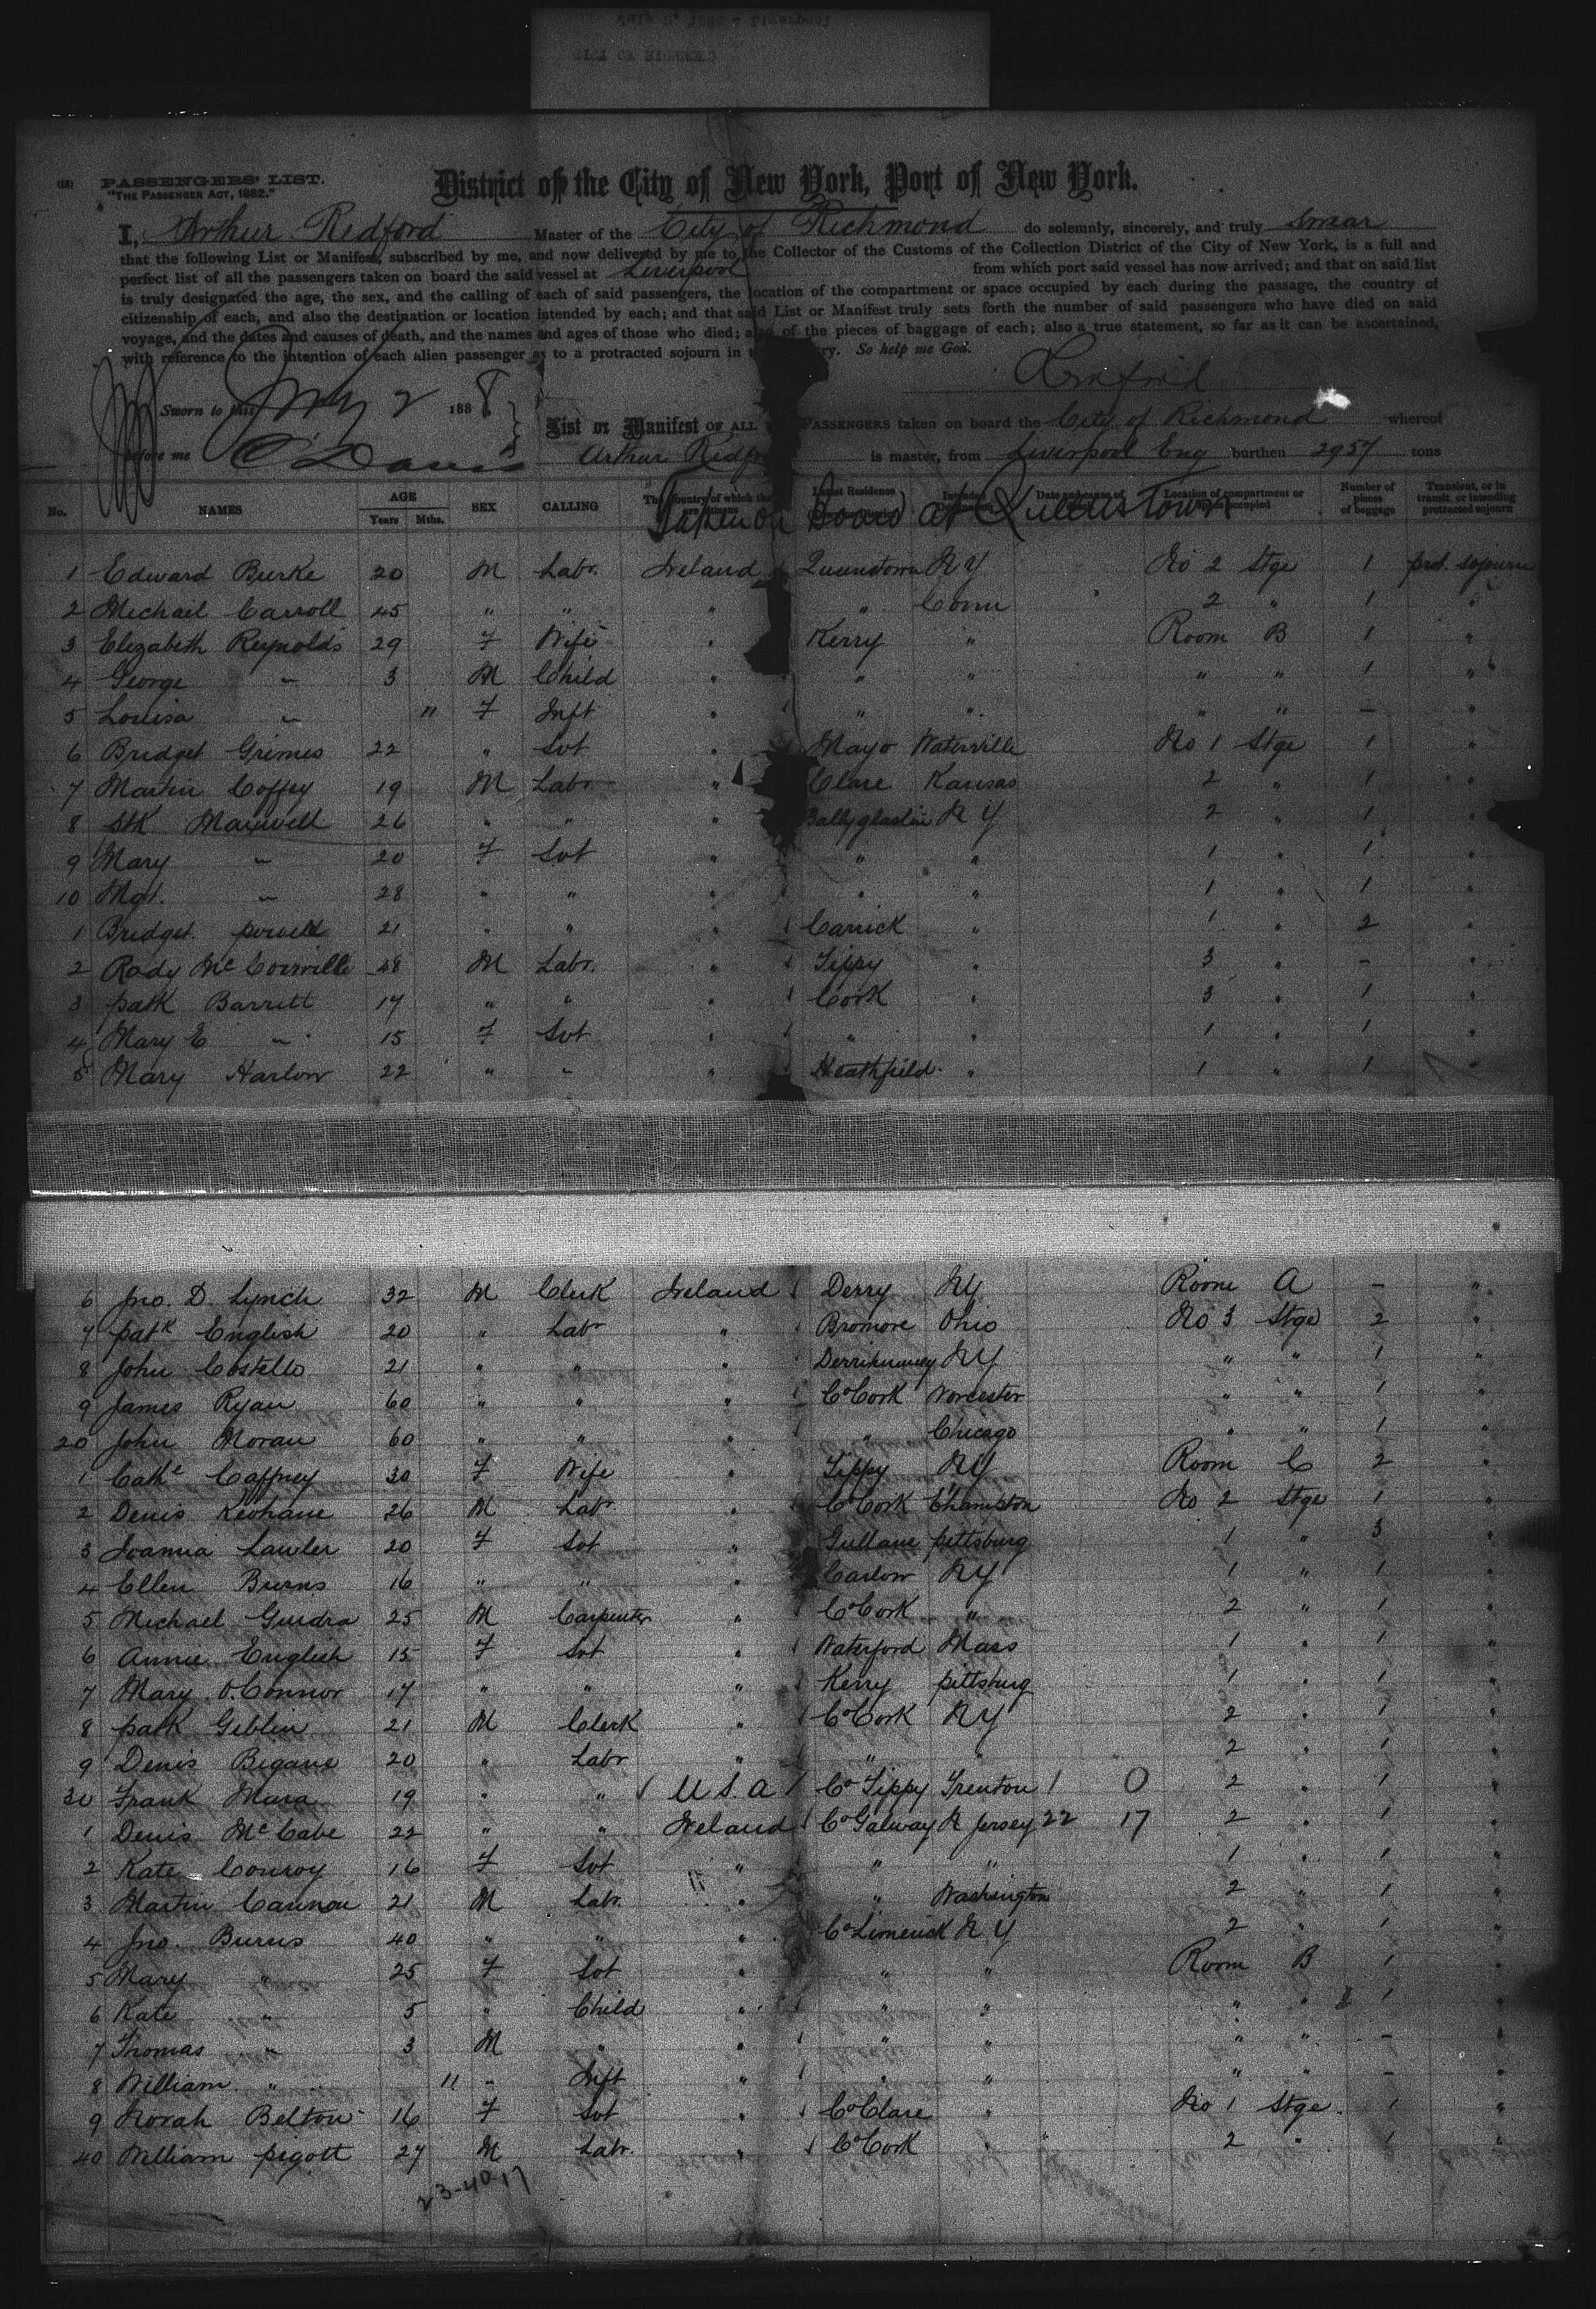 PASSENGERS' LIST.
"THE PASSENGER ACT, 1882."
District of the City of New York, Port of New York.
I, Arthur Redford Master of the City of Richmond do solemnly, sincerely, and truly swear
that the following List or Manifest, subscribed by me, and now delivered by me to the Collector of the Customs of the Collection District of the City of New York, is a full and
perfect list of all the passengers taken on board the said vessel at Liverpool from which port said vessel has now arrived; and that on said list
is truly designated the age, the sex, and the calling of each of said passengers, the location of the compartment or space occupied by each during the passage, the country of
citizenship of each, and also the destination or location intended by each; and that said List or Manifest truly sets forth the number of said passengers who have died on said
voyage, and the dates and causes of death, and the names and ages of those who died; also of the pieces of baggage of each; also a true statement, so far as it can be ascertained,
with reference to the intention of each alien passenger as to a protracted sojourn in ry. So help me God.
Sworn to this 2 1888
before me
List or Manifest OF ALL PASSENGERS taken on board the City of Richmond whereof
Arthur Redf is master, from Liverpool Eng burthen 2957 tons
No. NAMES AGE Years Mths. SEX CALLING Number of pieces of baggage Transient, or in transit, or intending protracted sojourn
Taken on Board at Queenstown
1 Edward Burke 20 M Labr. Ireland Queenstown N Y No 2 Stge 1 prot. sojourn
2 Michael Carroll 45 " " " " Conn 2 " 1 "
3 Elizabeth Reynolds 29 F Wife " Kerry " Room B 1 "
4 George " 3 M Child " " " " " 1 "
5 Louisa " 11 F Inft " " " " " - "
6 Bridget Grimes 22 " Svt " Mayo Waterville No 1 Stge 1 "
7 Martin Coffey 19 M Labr " Clare Kansas 2 " 1 "
8 Maxwell 26 " " " N Y 2 " 1 "
9 Mary " 20 F Svt " " " 1 " 1 "
10 Mgt. " 28 " " " " " 1 " 1 "
1 Bridget Powell 21 " " " Carrick " 1 " 2 "
2 Rody 48 M Labr. " Tippy " 3 " - "
3 Patk Barrett 17 " " " Cork " 3 " 1 "
4 Mary E " 15 F Svt " " " 1 " 1 "
5 Mary Harlow 22 " " " Heathfield " 1 " 1
6 Jno. D. Lynch 32 M Clerk Ireland Derry NY Room A - "
7 Patk English 20 " Labr " Bromore Ohio No 3 Stge 2 "
8 John Costello 21 " " " NY " " 1 "
9 James Ryan 60 " " " Co Cork Worcester " " 1 "
20 John Moran 60 " " " " Chicago " " 1 "
1 Cathe Caffney 30 F Wife " Tippy NY Room C 2 "
2 Denis Keohane 26 M Labr " Co Cork No 2 Stge 1 "
3 Joanna Lawler 20 F Svt " Gullane Pittsburg 1 " 3 "
4 Ellen Burns 16 " " " Carlow NY 1 " 1 "
5 Michael 25 M Carpenter " Co Cork " 2 " 1 "
6 Annie English 15 F Svt " Waterford Mass 1 " 1 "
7 Mary O.Connor 17 " " " Kerry Pittsburg 1 " 1 "
8 Patk Giblin 21 M Clerk " Co Cork NY 2 " 1 "
9 Denis Bigane 20 " Labr " " " 2 " 1 "
30 Frank Mara 19 " " U.S.A Co Tippy Trenton 1 0 2 " 1 "
1 Denis McCabe 22 " " Ireland Co Galway N Jersey 22 17 2 " 1 "
2 Kate Conroy 16 F Svt " " " 1 " 1 "
3 Martin Cannon 21 M Labr. " " Washington 2 " 1 "
4 Jno. Burns 40 " " " Co Limerick N Y 2 " 1 "
5 Mary " 25 F Svt " " " Room B 1 "
6 Kate " 5 " Child " " " " " 1 "
7 Thomas " 3 M " " " " " " - "
8 William " 11 " Inft " " " " " - "
9 Norah Belton 16 F Svt " Co Clare " No 1 Stge. 1 "
40 William Pigott 27 M Labr. " Co Cork " 2 " 1 "
23-40-17